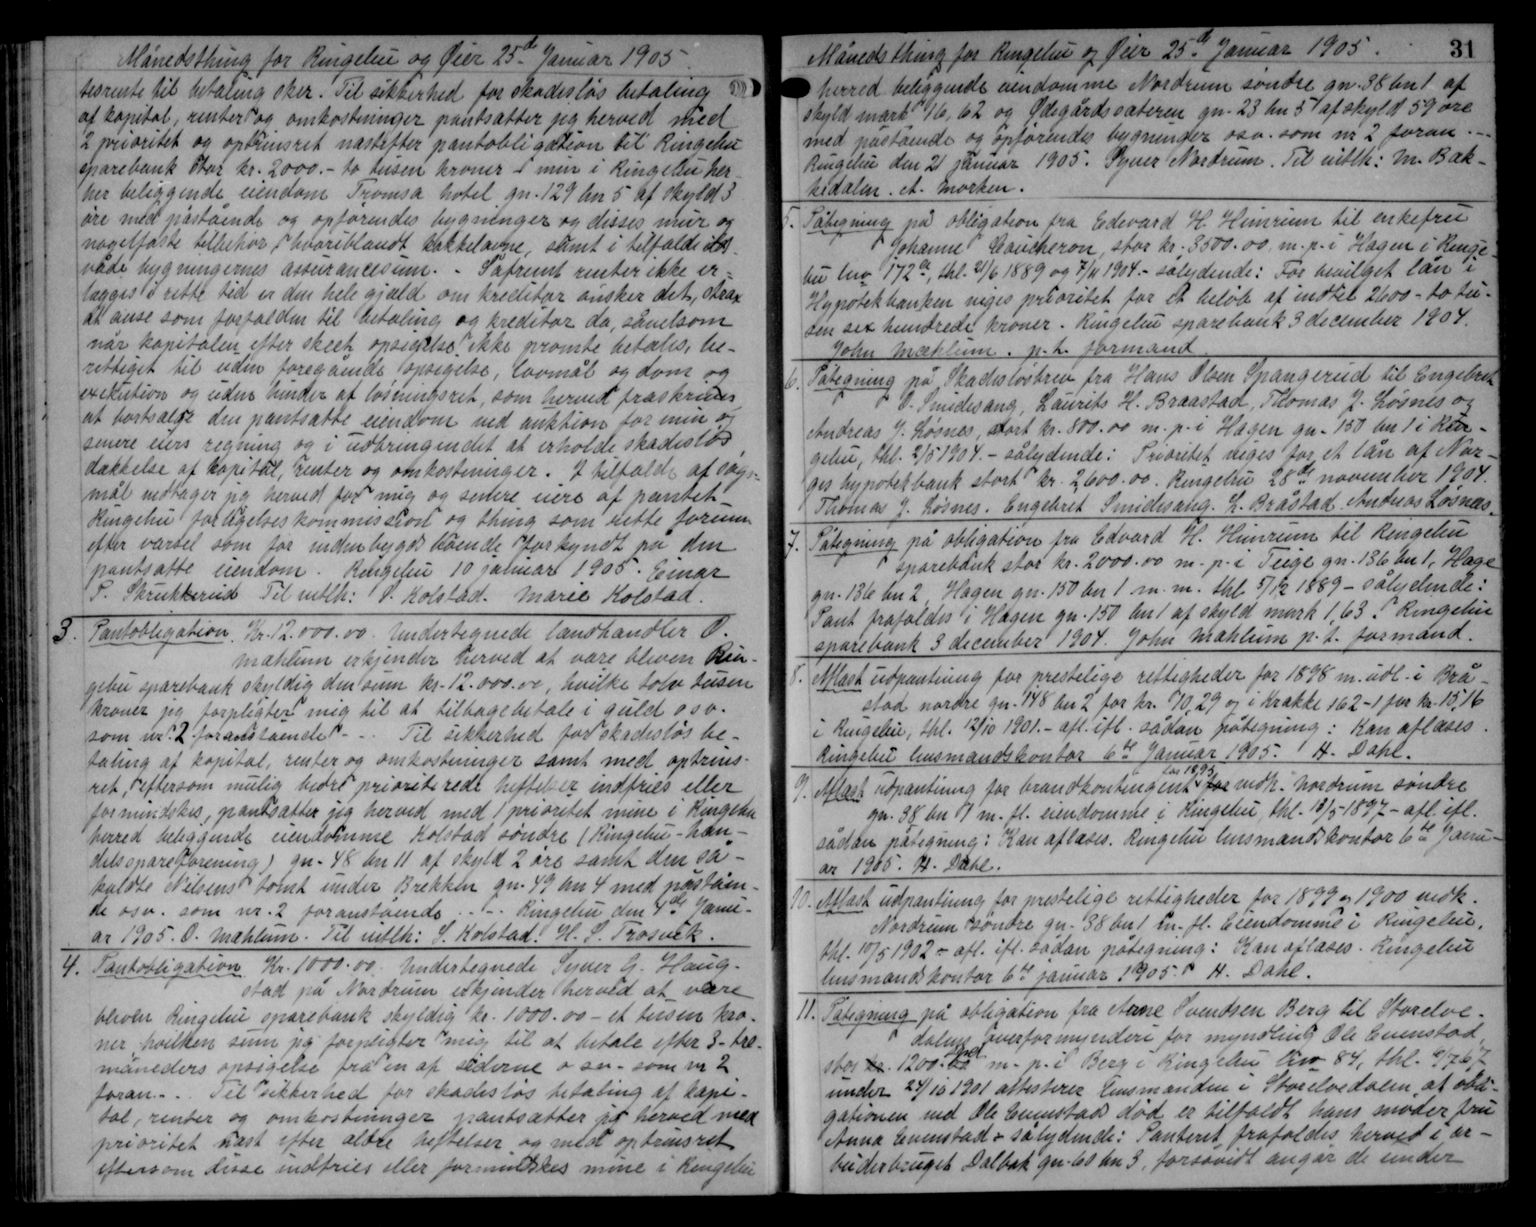 Månedsthing for Ringebu og Øier 25de Januar 1905.
tesrente til betaling sker. Til sikkerhed for skadesløs betaling
af kapital, renter og omkostninger pantsætter jeg herved med
2 prioritet og optrinsret næstefter pantobligation til Ringebu
sparebank stor kr. 2000.- to tusen kroner - min i Ringebu her-
her beliggende eiendom Tromsa hotel gn. 129 bn 5 af skyld 3
øre med påstående og opførendes bygninger og disses mur og
nagelfaste tilbehør, hvoriblandt kakkelovne, samt i tilfælde ilds-
våde bygningernes assurancesum. - Såfremt renter ikke er-
lægges i rette tid er den hele gjæld om kreditor ønsker det, strax
at anse som forfalden til betaling og kreditor da, såvelsom
når kapitalen efter skeet opsigelse ikke promte betales, be-
rettiget til uden foregående opsigelse, lovmål og dom og
exekution og uden hinder af løsningsret, som herved fraskrives
at bortsælge den pantsatte eiendom ved auktion for min og
senere eiers regning og i udbringendet at erholde skadesløs
dækkelse af kapital, renter og omkostninger. I tilfælde af søgs-
mål vedtager jeg herved for mig og senere eiere af pantet
Ringebu forligelseskommission og thing som rette forum
efter varsel som for indenbygds boende forkyndt på den
pantsatte eiendom. Ringebu 10 januar 1905. Einar
P. Skrukkerud Til vitlh: S. Kolstad. Marie Kolstad.
3. Pantobligation Kr. 12.000.00. Undertegnede landhandler O.
Mæhlum erkjender herved at være bleven Rin-
gebu sparebank skyldig den sum kr. 12.000.00, hvilke tolv tusen
kroner jeg forpligter mig til at tilbagebetale i guld osv.
som nr. 2 foranstående - .. Til sikkerhed for skadesløs be-
taling af kapital, renter og omkostninger samt med optrins-
ret, eftersom mulig bedre prioriterede heftelser indfries eller
formindskes, pantsætter jeg herved med 1 prioritet mine i Ringebu
herred beliggende eiendomme Kolstad søndre (Ringebu-han-
delsspareforening) gn. 48 bn 11 af skyld 2 øre samt den så-
kaldte Nilsens tomt under Brekken gn. 49 bn 4 med påståen-
de osv. som nr. 2 foranstående ... Ringebu den 4de Janu-
ar 1905. O. Mæhlum. Til vitlh: S. Kolstad. H. S. Trosvik.
4. Pantobligation Kr. 1000.00. Undertegnede Syver G. Haug-
stad på Nordrum erkjender herved at være
bleven Ringebu sparebank skyldig kr. 1000.00 - et tusen kro-
ner hvilken sum jeg forpligter mig til at betale efter 3- tre-
måneders opsigelse fra en af siderne o sv. som nr 2
foran... Til sikkerhed for skadesløs betaling af kapi-
tal, renter og omkostninger pantsætter jeg herved med
prioritet næst efter ældre heftelser og med optrinsret
eftersom disse indfries eller formindskes mine i Ringebu
Månedsthing for Ringebu og Øier 25de Januar 1905. 31
herred beliggende eiendomme Nordrum søndre gn. 38 bn 1 af
skyld mark 16,62 og Ødegårdssæteren gn. 23 bn 5 af skyld 59 øre
med påstående og opførendes bygninger osv. som nr 2 foran ...
Ringebu den 21 januar 1905. Syver Nordrum. Til vitlh: M. Bak-
kedalen. A. Morken.
5. Påtegning på obligation fra Edevard H. Himrum til enkefru
Johanne Coucheron, stor kr. 3500.00. m. p. i Hagen i Ringe-
bu lnr 172a, thl. 21/6 1889 og 7/11 1904 - sålydende: For bevilget lån i
Hypotekbanken viges prioritet for et beløb af indtil 2600 - to tu-
sen sex hundrede kroner. Ringebu sparebank 3 december 1904.
John Mæhlum. p. t. formand
6. Påtegning på Skadesløsbrev fra Hans Olsen Spangerud til Engebret
O. Smidesang, Laurits H. Braastad, Thomas J. Løsnes og
Andreas J. Løsnes, stort kr. 800.00 m. p. i Hagen gn. 150 bn 1 i Rin-
gebu, thl. 2/5 1904. - sålydende: Prioritet viges for et lån af Nor-
ges hypotekbank stort kr. 2,600.00. Ringebu 28de november 1904.
Thomas J. Løsnes. Engebret Smidesang. L. Bråstad. Andreas Løsnes.
7. Påtegning på obligation fra Edvard H. Himrum til Ringebu
sparebank stor kr. 2000.00 m. p. i Teige gn. 136 bn 1, Hage
gn. 136 bn 2, Hagen gn. 150 bn 1 m. m. thl 5/12 1889 - sålydende:
Pant frafaldes i Hagen gn. 150 bn 1 af skyld mark 1,63. Ringebu
sparebank 3 december 1904. John Mæhlum p. t. formand.
8. Aflæst udpantning for prestelige rettigheder for 1898 m. udl. i Brå-
stad nordre gn. 148 bn 2 for kr. 70,29 og i Krække 162-1 for kr. 15,16
i Ringebu, thl. 12/10 1901. - afl. ifl. sådan påtegning: Kan aflæses.
Ringebu lensmandskontor 6te Januar 1905. H. Dahl.
9. Aflæst udpantning for brandkontingent for 1895 vedk. Nordrum søndre
gn. 38 bn 1 m. fl. eiendomme i Ringebu, thl. 13/5 1897 - afl. ifl.
sådan påtegning: Kan aflæses. Ringebu lensmandskontor 6te Janu-
ar 1905. H. Dahl.
10. Aflæst udpantning for prestelige rettigheder for 1899 og 1900 vedk.
Nordrum søndre gn. 38 bn 1 m. fl. Eiendomme i Ringebu,
thl. 10/5 1902 - afl. ifl. sådan påtegning: Kan aflæses. Ringebu
lensmandskontor 6te januar 1905. H. Dahl.
11. Påtegning på obligation fra Arne Svendsen Berg til Storelve-
dalens overformynderi for myndling Ole Evenstad,
stor 1200 m. p. i Berg i Ringebu lnr 84, thl.
under 24/10 1901 attesterer lensmanden i Storelvedalen at obli-
gationen ved Ole Evenstads død er tilfaldt hans moder fru
Anna Evenstad - sålydende: Panteret frafaldes herved i ar-
beiderbruget Dalbak gn. 60 bn 3, forsåvidt angår de under